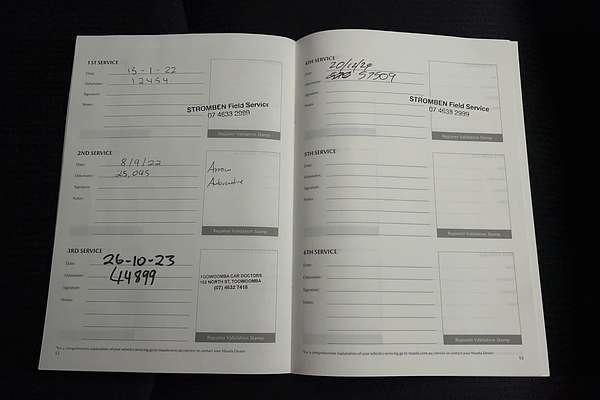 1ST SERVICE
Date: 13-1-22
Odometer: 12454
Signature:
Notes:
STROMBEN Field Service
07 4633 2999
Repairer Validation Stamp
2ND SERVICE
Date: 8/9/22
Odometer: 25,045
Signature:
Notes:
Arrow
Automotive
Repairer Validation Stamp
3RD SERVICE
Date: 26-10-23
Odometer: 44899
Signature:
Notes:
TOOWOOMBA CAR DOCTORS
153 NORTH ST, TOOWOOMBA
(07) 4632 7418
Repairer Validation Stamp
4TH SERVICE
Date: 20/12/24
Odometer: 57509
Signature:
Notes:
STROMBEN Field Service
07 4633 2999
Repairer Validation Stamp
5TH SERVICE
Date:
Odometer:
Signature:
Notes:
Repairer Validation Stamp
6TH SERVICE
Date:
Odometer:
Signature:
Notes:
Repairer Validation Stamp